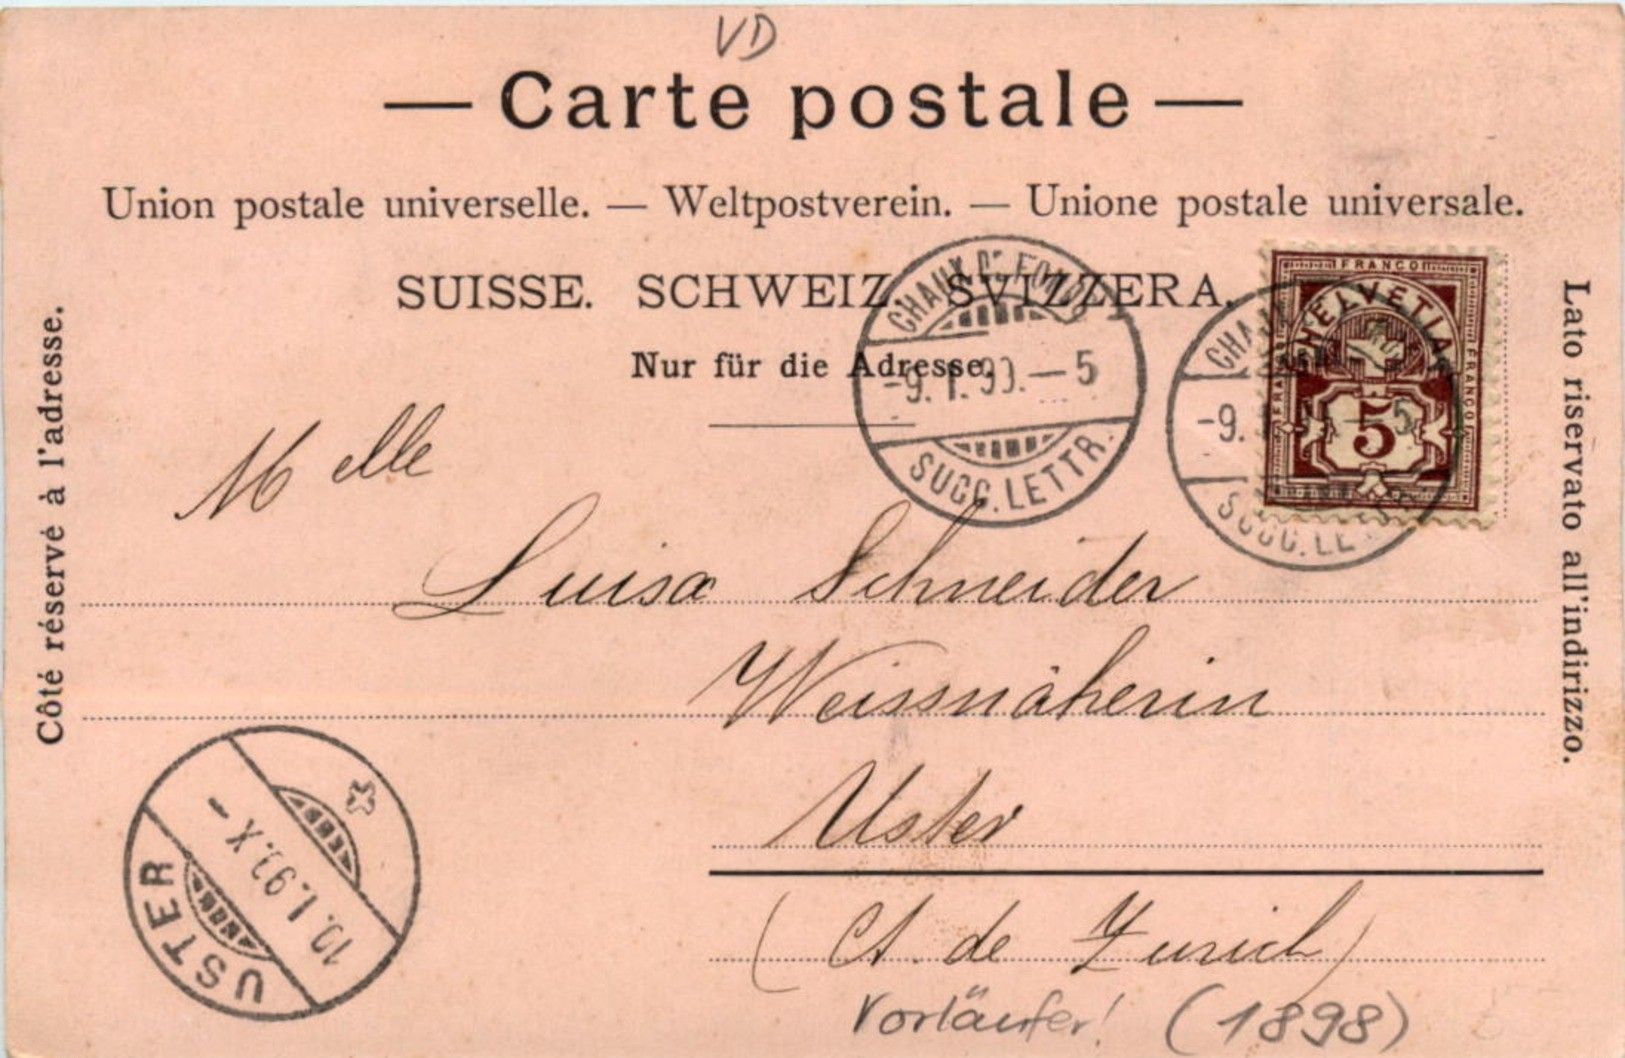 VD
— Carte postale —
Union postale universelle. — Weltpostverein. — Unione postale universale.
SUISSE. SCHWEIZ. SVIZZERA.
Nur für die Adresse.
Côté réservé à l'adresse.
Lato riservato all'indirizzo.
CHAUX-DE-FONDS
-9. I. 99.—5
SUCC. LETTR.
FRANCO
HELVETIA
FRANCO
5
-9.
5
SUCC. LETTR.
Melle
Luisa Schneider
Weissnäherin
Uster
(Ct. de Zurich)
Vorläufer! (1898)
USTER
10. I. 99. X -